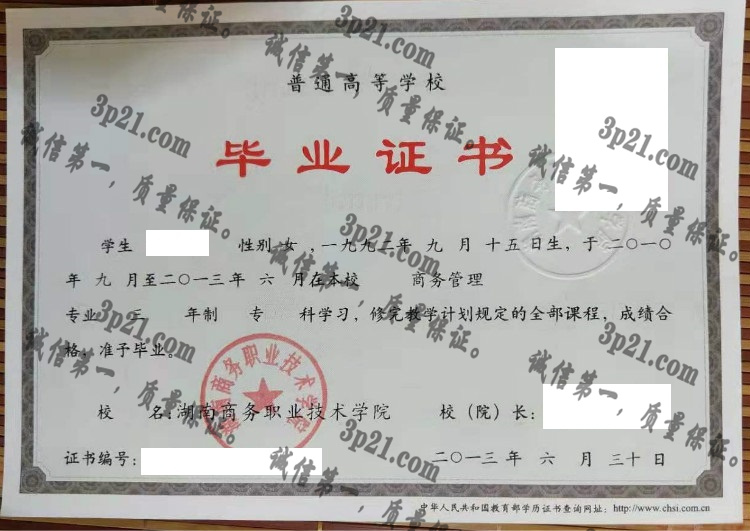 普通高等学校
毕业证书
学生 性别 女 ，一九九二年 九 月 十五 日生，于 二〇一〇
年 九 月至二〇一三年 六 月在本校 商务管理
专业 三 年制 专 科学习，修完教学计划规定的全部课程，成绩合
格，准予毕业。
湖南商务职业技术学院
校 名:湖南商务职业技术学院 校（院）长:
证书编号: 二〇一三 年 六 月 三十 日
中华人民共和国教育部学历证书查询网址：http://www.chsi.com.cn
3p21.com
诚信第一，质量保证。
3p21.com
诚信第一，质量保证。
3p21.com
诚信第一，质量保证。
3p21.com
诚信第一，质量保证。
3p21.com
诚信第一，质量保证。
3p21.com
诚信第一，质量保证。
3p21.com
诚信第一，质量保证。
质量保证。